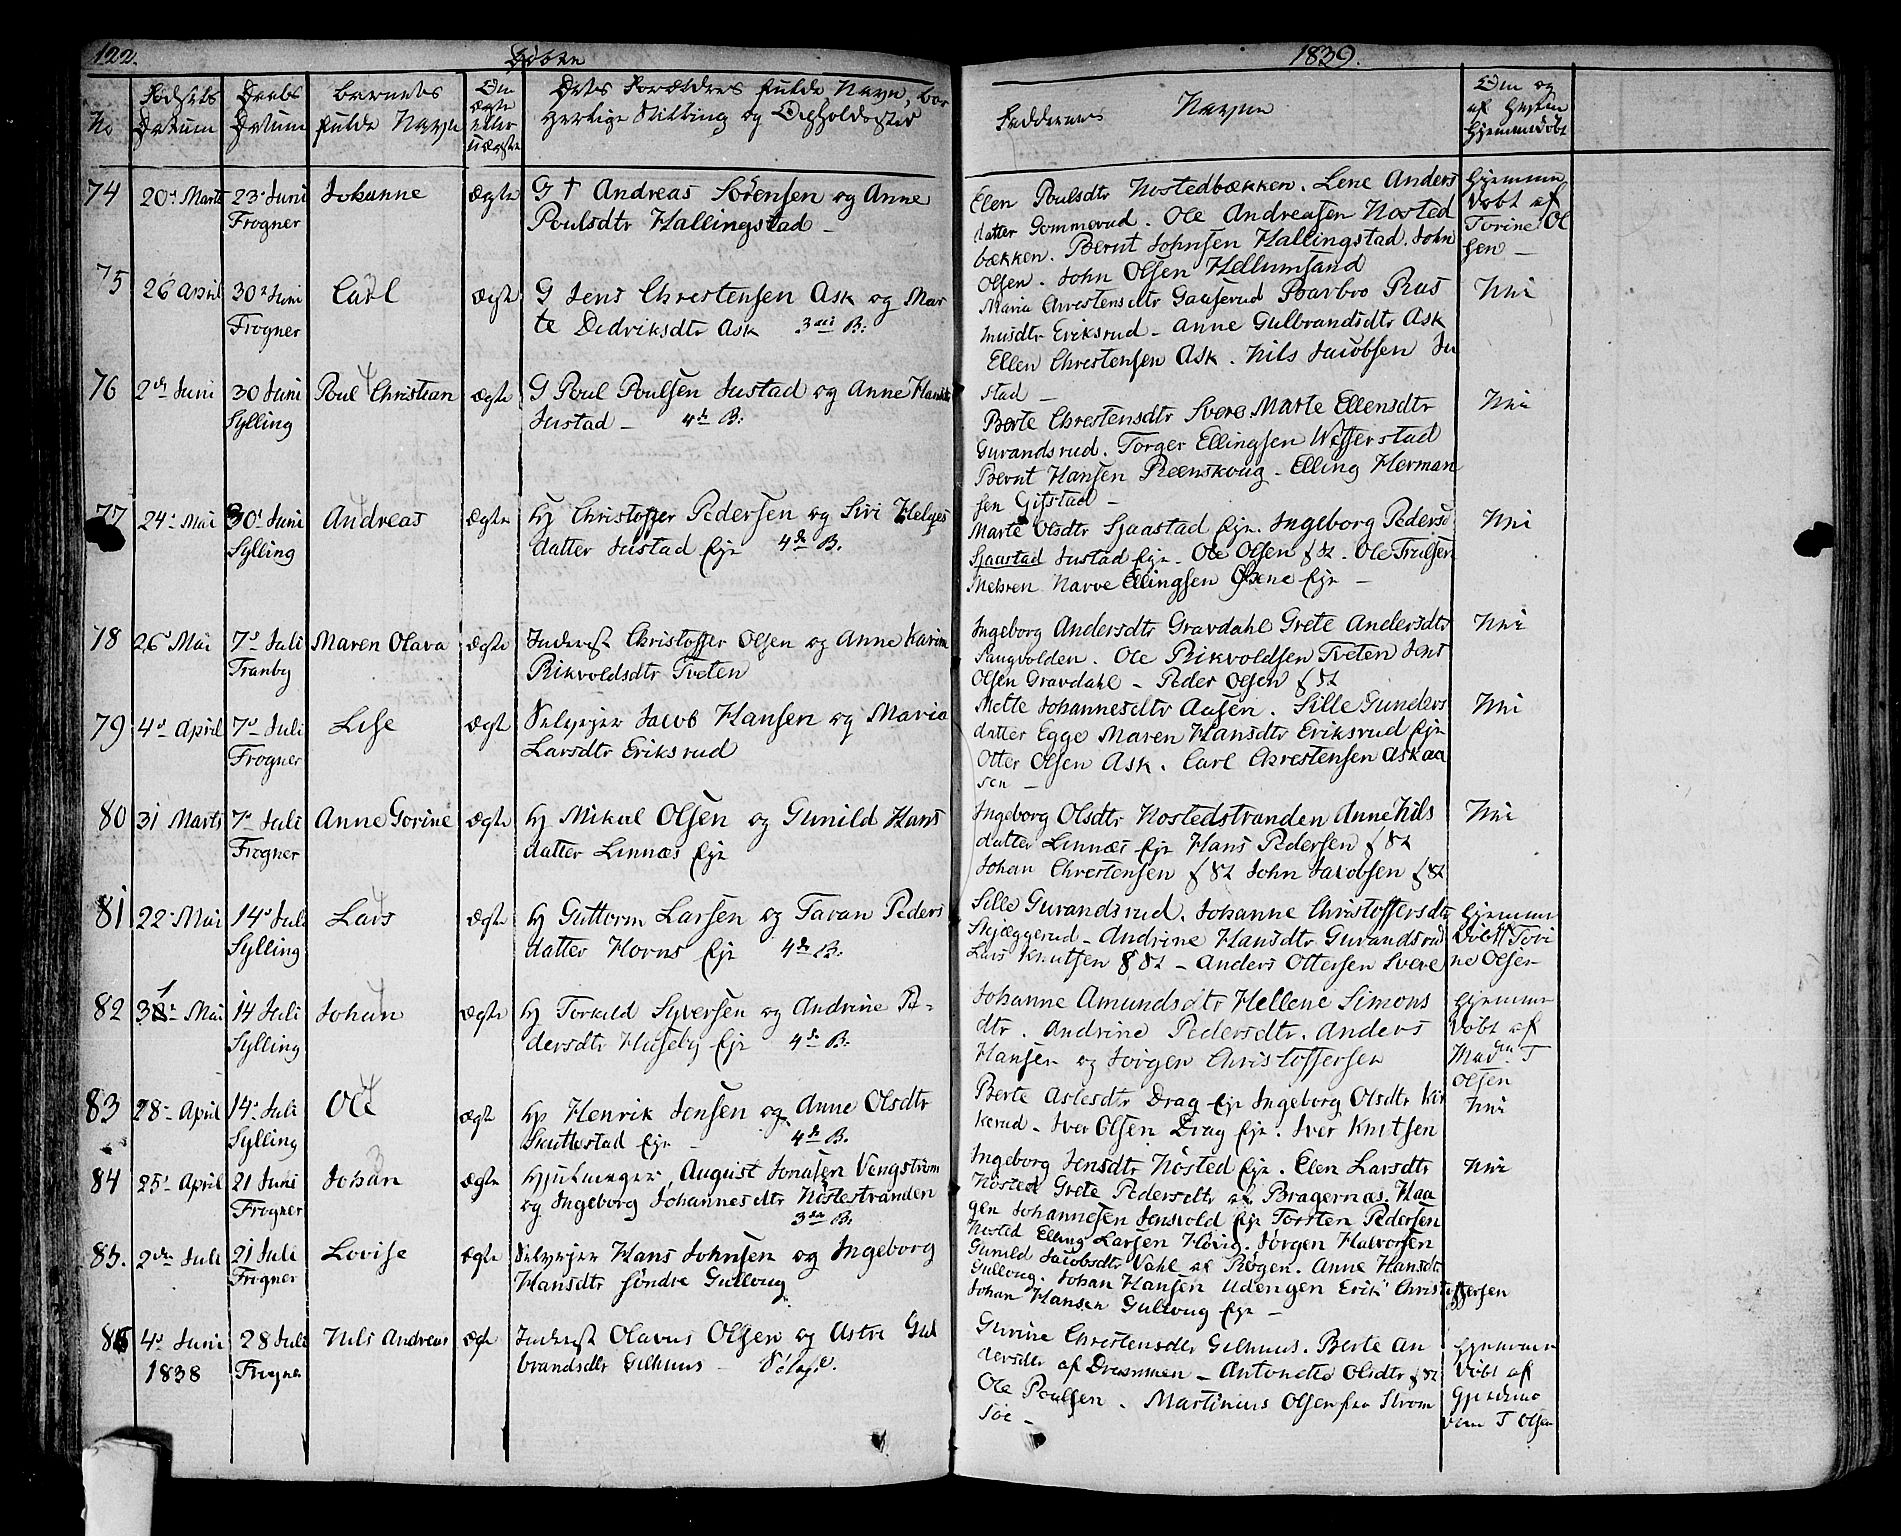 122.
Døbte
1839.
No
Fødsels Datum
Daabs Datum
Barnets fulde Navn
Om ægte eller uægte
Dets Forældres fulde Navn, bor
gerlige Stilling og Opholdssted
Faddernes Navne
Om og af hvem Hjemmedøbt
74
20de Marts
23de Juni
Frogner
Johanne
ægte
G † Andreas Sörensen og Anne
Poulsdtr Hallingstad –
Elen Poulsdtr Nostedbækken. Lene Anders
datter Gommerud. Ole Andreasen Nosted
bækken. Bernt Johnsen Hallingstad. John
Olsen. John Olsen Hellumsand
Hjemme
døbt af
Torine Ol
sen –
75
26 April
30te Juni
Frogner
Carl
ægte
G Jens Chrestensen Ask og Mar
te Dedriksdtr Ask 3die B:
Maria Chrestensdtr Gaaserud Barbro Ras
musdtr Eriksrud – Anne Gulbrandsdtr Ask
Ellen Chrestensen Ask. Nils Jacobsen Ju
stad –
Nei
76
2den Juni
30 Juni
Sylling
4
Poul Christian
ægte
G Poul Poulsen Justad og Anne Hansdtr
Justad – 4de B:
Berte Chrestensdtr Svere Marte Ellensdtr
Gurandsrud. Torger Ellingsen Wefferstad
Bernt Hansen Reenskoug – Elling Herman
sen Gifstad –
Nei
77
24de Mai
30te Juni
Sylling
4
Andreas
ægte
Hj Christoffer Pedersen og Siri Helges
datter Justad Eje 4de B.
Marte Olsdtr Sjaastad Eje. Ingeborg Pedersd
Sjaastad Justad Eje. Ole Olsen f 82. Ole Trulsen
Mehren Narve Ellingsen Eje –
Nei
78
26 Mai
7de Juli
Tranby
Maren Olava
ægte
Inderst Christoffer Olsen og Anne Karine
Rikvoldsdtr Tveten
Ingeborg Andersdtr Gravdahl Grete Andersdtr
Haugvolden. Ole Rikvoldsen Tveten Jens
Olsen Gravdahl – Peder Olsen f 82
Nei
79
4de April
7de Juli
Frogner
Lise
ægte
Selvejer Jacob Hansen og Maria
Larsdtr Eriksrud
Mette Johannesdtr Aasen. Sille Gunders
datter Egge Maren Hansdtr Eriksrud Eje
Otter Olsen Ask. Carl Chrestensen Askaa
sen –
Nei
80
31 Marts
7de Juli
Frogner
Anne Gorine
ægte
Hj Mikal Olsen og Gunild Hans
datter Linnæs Eje
Ingeborg Olsdtr Nostedstranden Anne Nils
datter Linnæs Eje Hans Pedersen f 82
Johan Chrestensen f 82 John Jacobsen f 82
Nei
81
22de Mai
14de Juli
Sylling
4
Lars
ægte
Hj Guttorm Larsen og Taran Peders
datter Horns Eje 4de B.
Sille Gurandsrud. Johanne Christoffersdtr
Skjæggerud – Andrine Hansdtr Gurandsrud
Lars Knutsen f 82 – Anders Ottersen Svere
Hjemme
døbt af Tori
ne Olsen
82
31 Mai
14 Juli
Sylling
4
Johan
ægte
Hj Torkild Syversen og Andrine Pe-
dersdtr Huseby Eje 4de B.
Johanne Amundsdtr Hellene Simons
dtr. Andrine Pedersdtr. Anders
Hansen og Jörgen Christoffersen
Hjemme
døbt af
Madm T
Olsen
83
28de April
14de Juli
Sylling
4
Ole
ægte
Hj Henrik Jensen og Anne Olsdtr
Skuttestad Eje – 4de B.
Berte Aslesdtr Drag Eje Ingeborg Olsdtr Kir
kerud – Iver Olsen Drag Eje. Iver Knutsen
Nei
84
25de April
21 Juni
Frogner
3
Johan
ægte
Hjulmager August Jonasen Vengstrom
og Ingeborg Johannesdtr Nöstestranden
3die B.
Ingeborg Jensdtr Nösted Eje. Elen Larsdtr
Nösted Grete Pedersdtr af Bragernæs. Haa
gen Johannesen Jensvold Eje Torsten Pedersen
Nosted Elling Larsen Høvig. Jørgen Halvorsen
Nei
85.
2den Juli
21 Juli
Frogner
Lovise
ægte
Selvejer Hans Johnsen og Ingeborg
Hansdtr söndre Gulloug
Gunild Jacobsdtr Dahl af Røgen. Anne Hansdtr
Gulloug. Johan Hansen Udengen Erik Christoffersen
Johan Hansen Gulloug Eje –
86
4de Juni
1838
28 Juli
Frogner
Nils Andreas
ægte
Inderst Olavus Olsen og Astri Gul
brandsdtr Gilhuus –
Gurine Chrestensdtr Gilhuus. Berte An
dersdtr af Drammen – Antonette Olsdtr f 82
Ole Poulsen. Martinius Olsen fra Strom
söe –
Hjemme
døbt af
Gjordemo
deren T Olsen